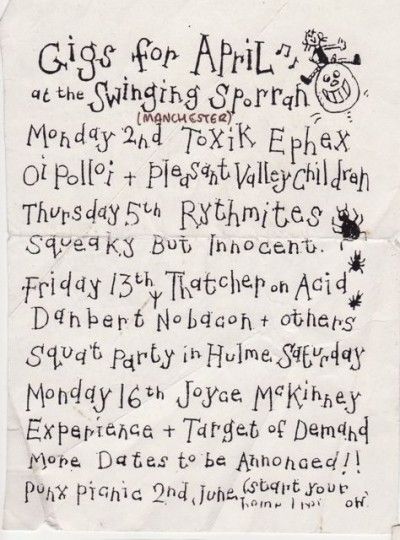 Gigs for April
at the Swinging Sporran
(MANCHESTER)
Monday 2nd Toxik Ephex
Oi Polloi + Pleasant Valley Children
Thursday 5th Rythmites
Squeaky But Innocent.
Friday 13th Thatcher on Acid
Danbert Nobacon + others
Squat Party in Hulme Saturday
Monday 16th Joyce McKinney
Experience + Target of Demand
More Dates to be Annonced!!
Punx Picnic 2nd, June, (start your